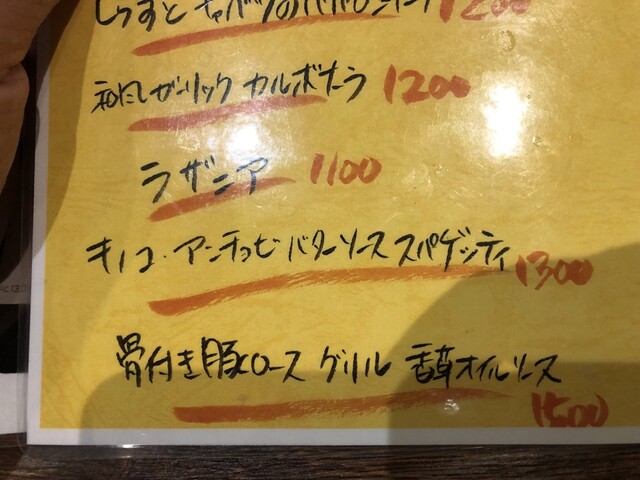 しらすとキャベツのペペロンチーノ 1200
和だしガーリック カルボナーラ 1200
ラザニア 1100
キノコ・アンチョビバターソース スパゲッティ 1300
骨付き豚ロース グリル 香草オイルソース
1500